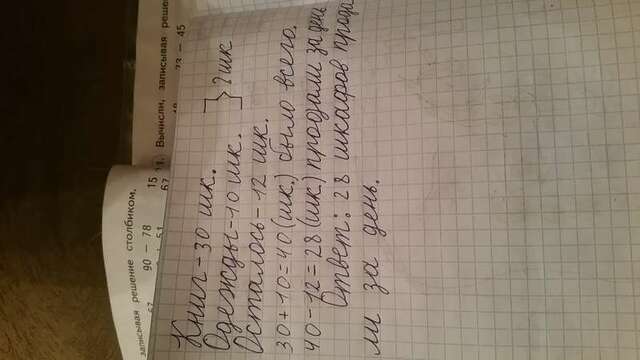 записывая решение столбиком,
90 – 78
15
67
11. Вычисли, записывая
73 – 45
Книг – 30 шк.
Одежды – 10 шк. ] ? шк
Осталось – 12 шк.
30+10=40 (шк.) было всего.
40–12=28 (шк.) продали за день
Ответ: 28 шкафов прода
ли за день.